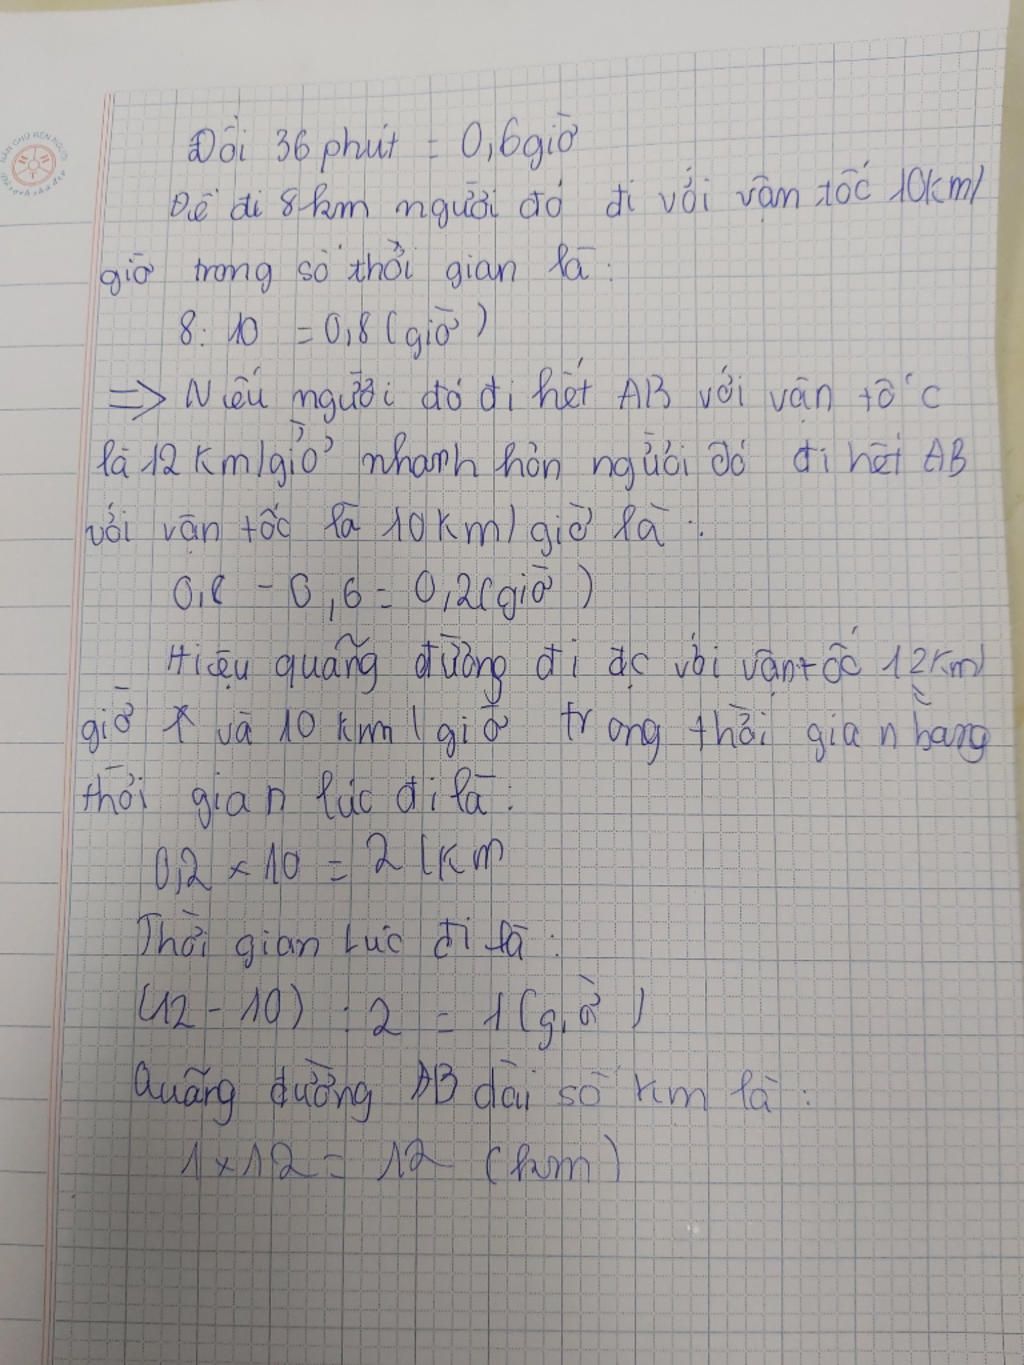 Đổi 36 phút = 0,6 giờ
Để đi 8km người đó đi với vận tốc 10km/
giờ trong số thời gian là:
8: 10 = 0,8 (giờ)
=> Nếu người đó đi hết AB với vận tốc
là 12 km/giờ nhanh hơn người đó đi hết AB
với vận tốc là 10km/giờ là:
0,8 - 0,6 = 0,2 (giờ)
Hiệu quãng đường đi đc với vận tốc 12km/
giờ và 10 km/giờ trong thời gian bằng
thời gian lúc đi là:
0,2 × 10 = 2 (km
Thời gian lúc đi là:
(12 - 10) : 2 = 1 (giờ)
Quãng đường AB dài số km là:
1 × 12 = 12 (km)